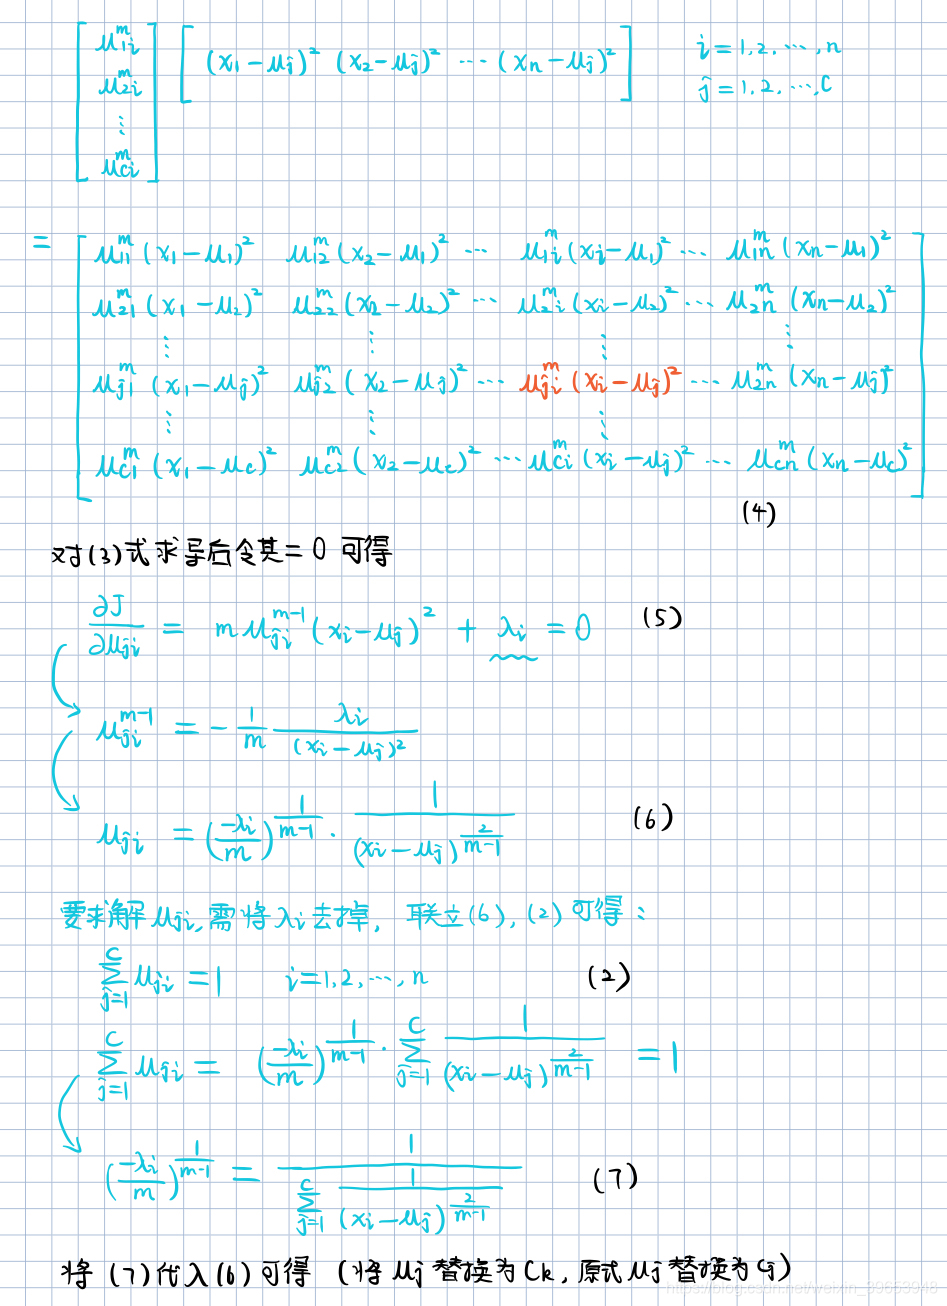 [μ₁ᵢᵐ μ₂ᵢᵐ ⋮ μcᵢᵐ] [(x₁-μⱼ)² (x₂-μⱼ)² ⋯ (xₙ-μⱼ)²] i=1,2,⋯,n
j=1,2,⋯,c
= [μ₁₁ᵐ(x₁-μ₁)² μ₁₂ᵐ(x₂-μ₁)² ⋯ μ₁ᵢᵐ(xᵢ-μ₁)² ⋯ μ₁ₙᵐ(xₙ-μ₁)²
μ₂₁ᵐ(x₁-μ₂)² μ₂₂ᵐ(x₂-μ₂)² ⋯ μ₂ᵢᵐ(xᵢ-μ₂)² ⋯ μ₂ₙᵐ(xₙ-μ₂)²
⋮ ⋮ ⋮ ⋮
μⱼ₁ᵐ(x₁-μⱼ)² μⱼ₂ᵐ(x₂-μⱼ)² ⋯ μⱼᵢᵐ(xᵢ-μⱼ)² ⋯ μ₂ₙᵐ(xₙ-μⱼ)²
⋮ ⋮ ⋮
μc₁ᵐ(x₁-μc)² μc₂ᵐ(x₂-μc)² ⋯ μcᵢᵐ(xᵢ-μⱼ)² ⋯ μcₙᵐ(xₙ-μc)²]
(4)
对(3)式求导后令其=0 可得
∂J/∂μⱼᵢ = m μⱼᵢ^(m-1) (xᵢ-μⱼ)² + λᵢ = 0 (5)
μⱼᵢ^(m-1) = - 1/m λᵢ/(xᵢ-μⱼ)²
μⱼᵢ = (-λᵢ/m)^(1/(m-1)) · 1/(xᵢ-μⱼ)^(2/(m-1)) (6)
要求解μⱼᵢ,需将λᵢ去掉, 联立(6),(2)可得:
∑_(j=1)^C μⱼᵢ = 1 i=1,2,⋯,n (2)
∑_(j=1)^C μⱼᵢ = (-λᵢ/m)^(1/(m-1)) · ∑_(j=1)^C 1/(xᵢ-μⱼ)^(2/(m-1)) = 1
(-λᵢ/m)^(1/(m-1)) = 1/(∑_(j=1)^C 1/(xᵢ-μⱼ)^(2/(m-1))) (7)
将(7)代入(6)可得 (将μⱼ替换为Ck,原式μⱼ替换为Cj)
https://blog.csdn.net/weixin_39653948